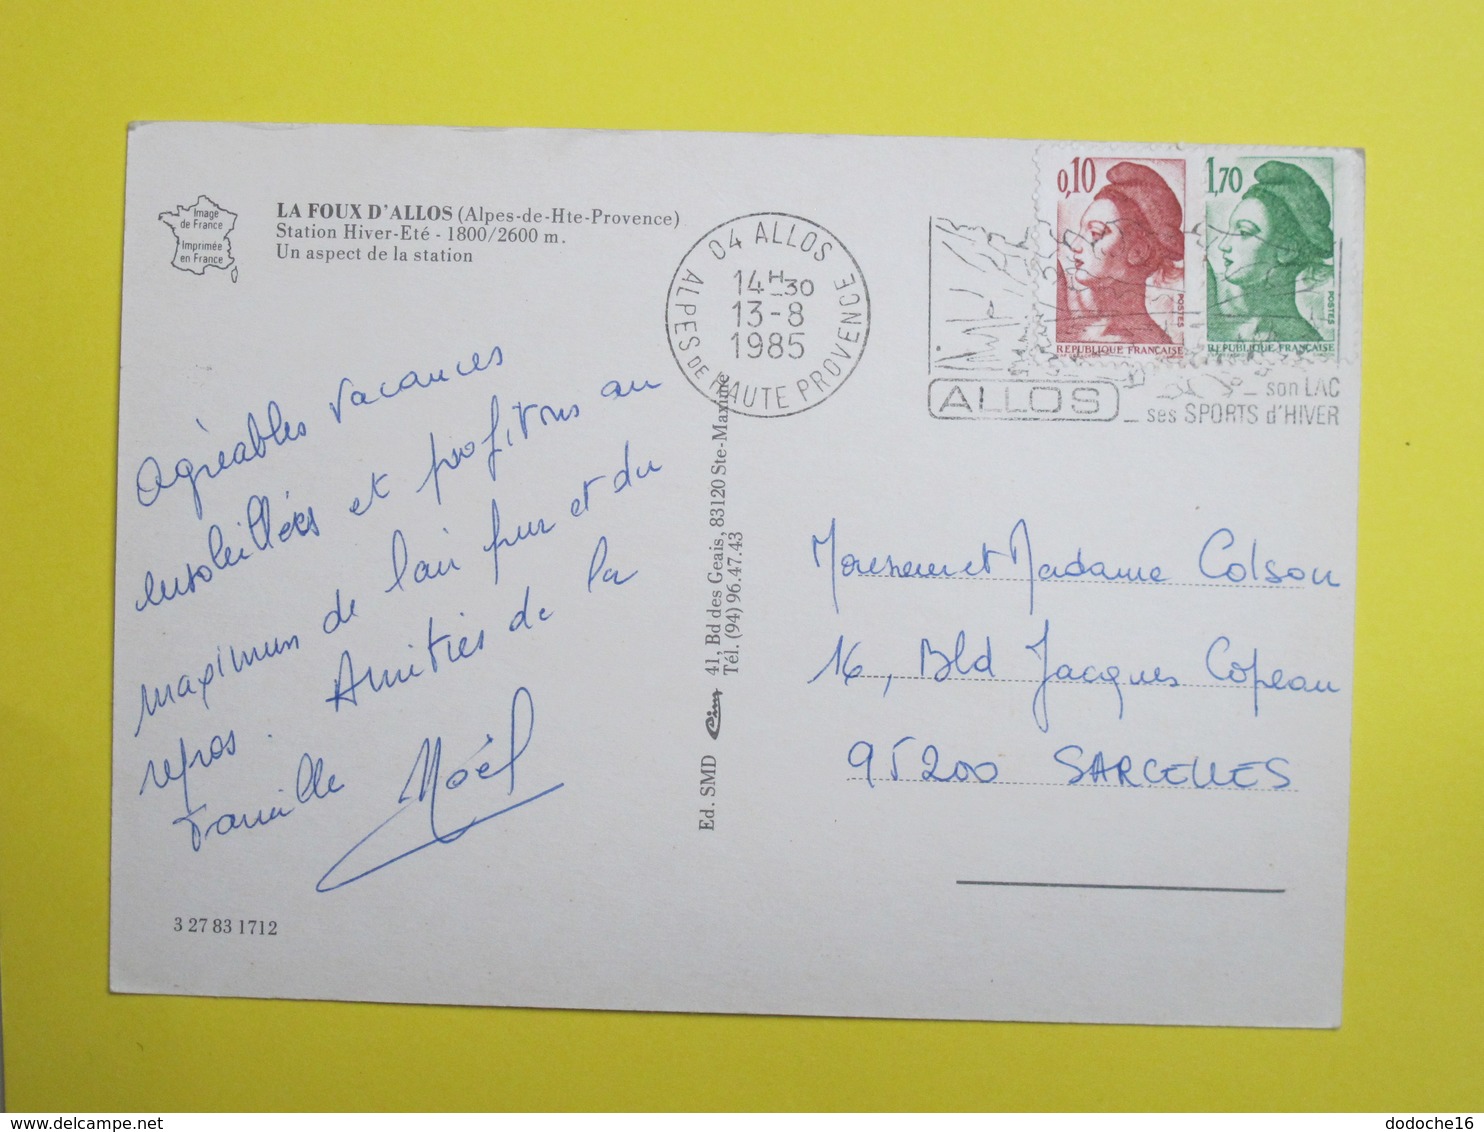 Image
de France
Imprimée
en France
LA FOUX D'ALLOS (Alpes-de-Hte-Provence)
Station Hiver-Eté - 1800/2600 m.
Un aspect de la station
04 ALLOS
14H30
13-8
1985
ALPES DE HAUTE PROVENCE
0,10
POSTES
REPUBLIQUE FRANÇAISE
1,70
POSTES
REPUBLIQUE FRANÇAISE
ALLOS
_ son LAC
_ ses SPORTS d'HIVER
Agréables vacances
ensoleillées et profitons au
maximum de l'air pur et du
repos. Amitiés de la
Famille Noël
3 27 83 1712
Ed. SMD Cim 41, Bd des Geais, 83120 Ste-Maxime
Tél. (94) 96.47.43
Monsieur et Madame Colson
16, Bld Jacques Copeau
95200 SARCELLES
dodoche16